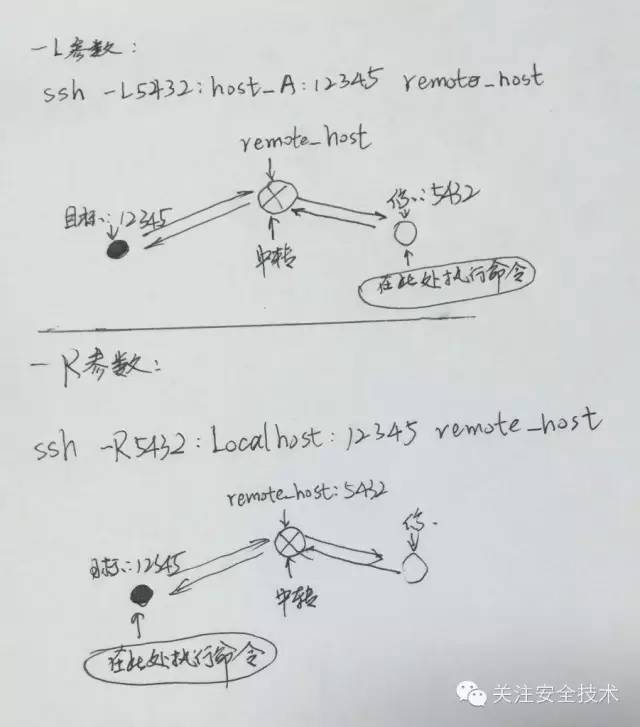 -L参数:
ssh -L5432:host_A:12345 remote_host
remote_host
目标:12345
你:5432
中转
在此处执行命令
-R参数:
ssh -R5432:Localhost:12345 remote_host
remote_host:5432
你.
目标:12345
中转
在此处执行命令
关注安全技术